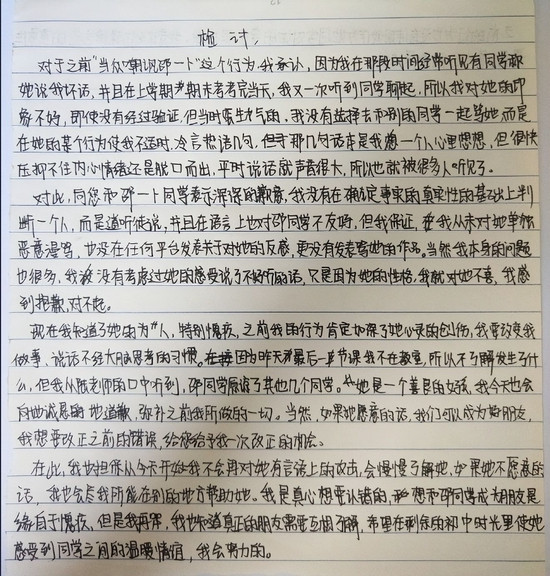 检讨,
对于之前"当众嘲讽邵一卜"这个行为,我承认,因为我在那段时间经常听见有同学都
她说我坏话,并且在上学期期末考考完当天,我又一次听到同学聊起,所以我对她的印
象不好,即使没有经过验证,但当时蛮生气的,我没有选择去和别的同学一起骂她,而是
在她的某个行为使我不适时,冷言热语几句,但那几句话本是我想一个人心里想想,但很快
压抑不住内心情绪还是脱口而出,平时说话就声音很大,所以也就被很多人听见了。
对此,向您和邵一卜同学表示深深的歉意,我没有在确定事实的真实性的基础上判
断一个人,而是道听徒说,并且在语言上也对邵同学不友好,但我保证,我从未对她单独
恶意漫骂,也没在任何平台发表关于对她的反感,更没有发表骂她的作品。当然我本身的问题
也很多,我没有考虑过她的感受说了不好听的话,只是因为她的性格,我就对她不喜,我感
到抱歉,对不起。
现在我知道了她的为人,特别愧疚,之前我的行为肯定加深了她心灵的创伤,我要改变我
做事、说话不经大脑思考的习惯。因为昨天最后一节课我不在教室,所以不了解发生了什
么,但我从班老师的口中听到,邵同学原谅了其他几个同学。她是一个善良的女孩,我今天也会
向她诚恳的地道歉,弥补之前我所做的一切。当然,如果她愿意的话,我们可以成为好朋友,
我想要改正之前的错误,给我一次改正的机会。
在此,我也担保从今天开始我不会再对她有言语上的攻击,会慢慢了解她,如果她不愿意的
话,我也会尽我所能在别的地方帮助她。我是真心想要认错的,想和邵同学成为朋友是
缘自于愧疚,但是我再,我也知道真正的朋友需要互相了解,希望在剩余的初中时光里使她
感受到同学之间的温暖情谊,我会努力的。